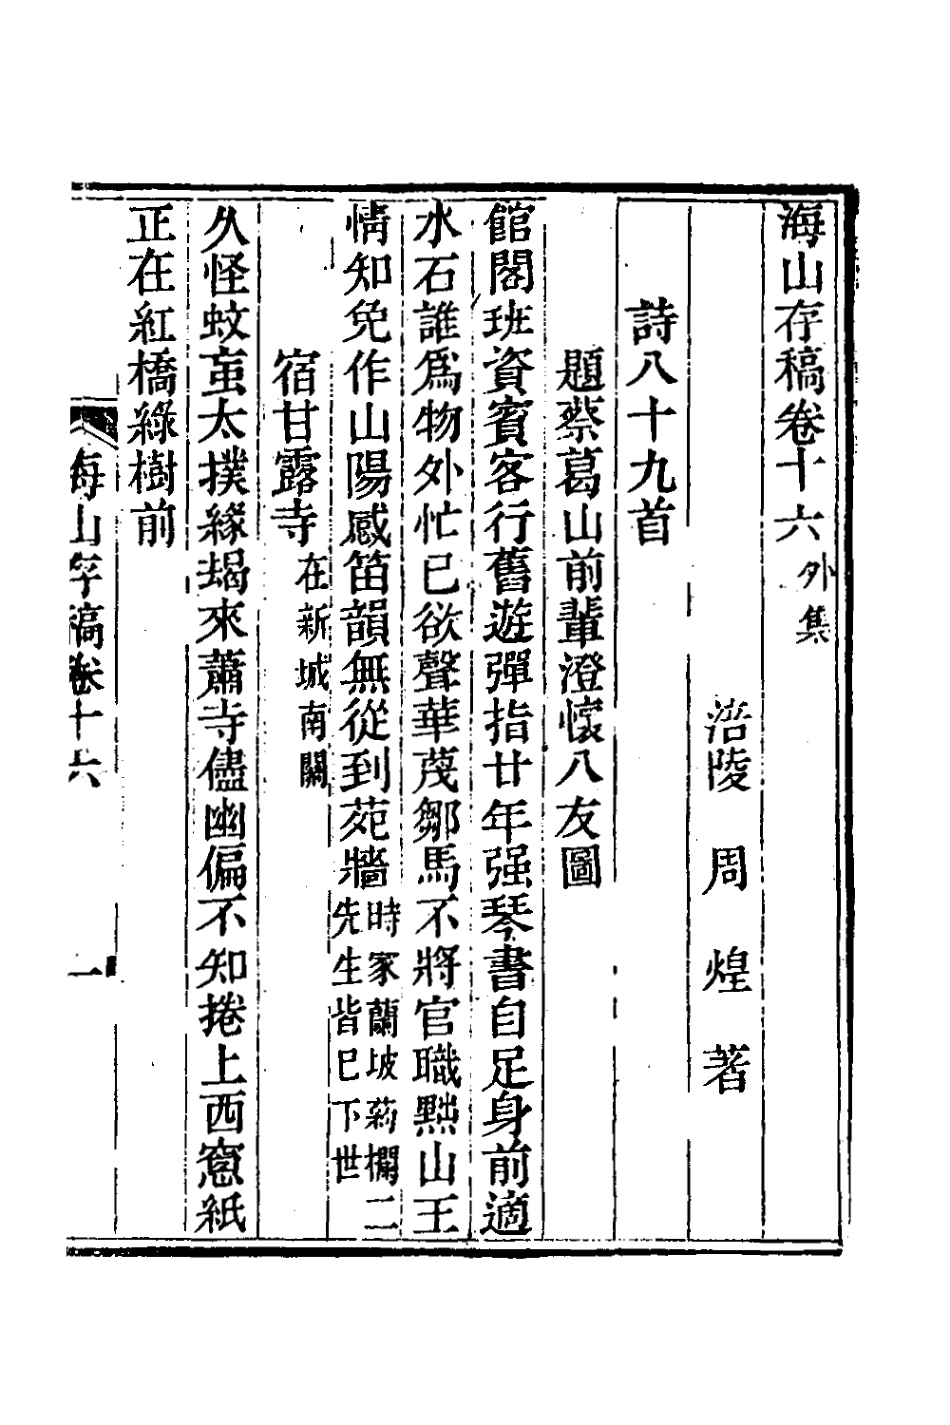 海山存稿卷十六外集
涪陵 周 煌 著
詩八十九首
題蔡葛山前輩澄懷八友圖
館閣班資賓客行舊遊彈指廿年强琴書自足身前適
水石誰爲物外忙已欲聲華茂鄒馬不將官職黜山王
情知免作山陽感笛韻無從到苑牆時家蘭坡葯欄二先生皆已下世
宿甘露寺在新城南關
久怪蚊䖟太撲緣朅來蕭寺儘幽偏不知捲上西窻紙
正在紅橋綠樹前
海山存稿卷十六
一